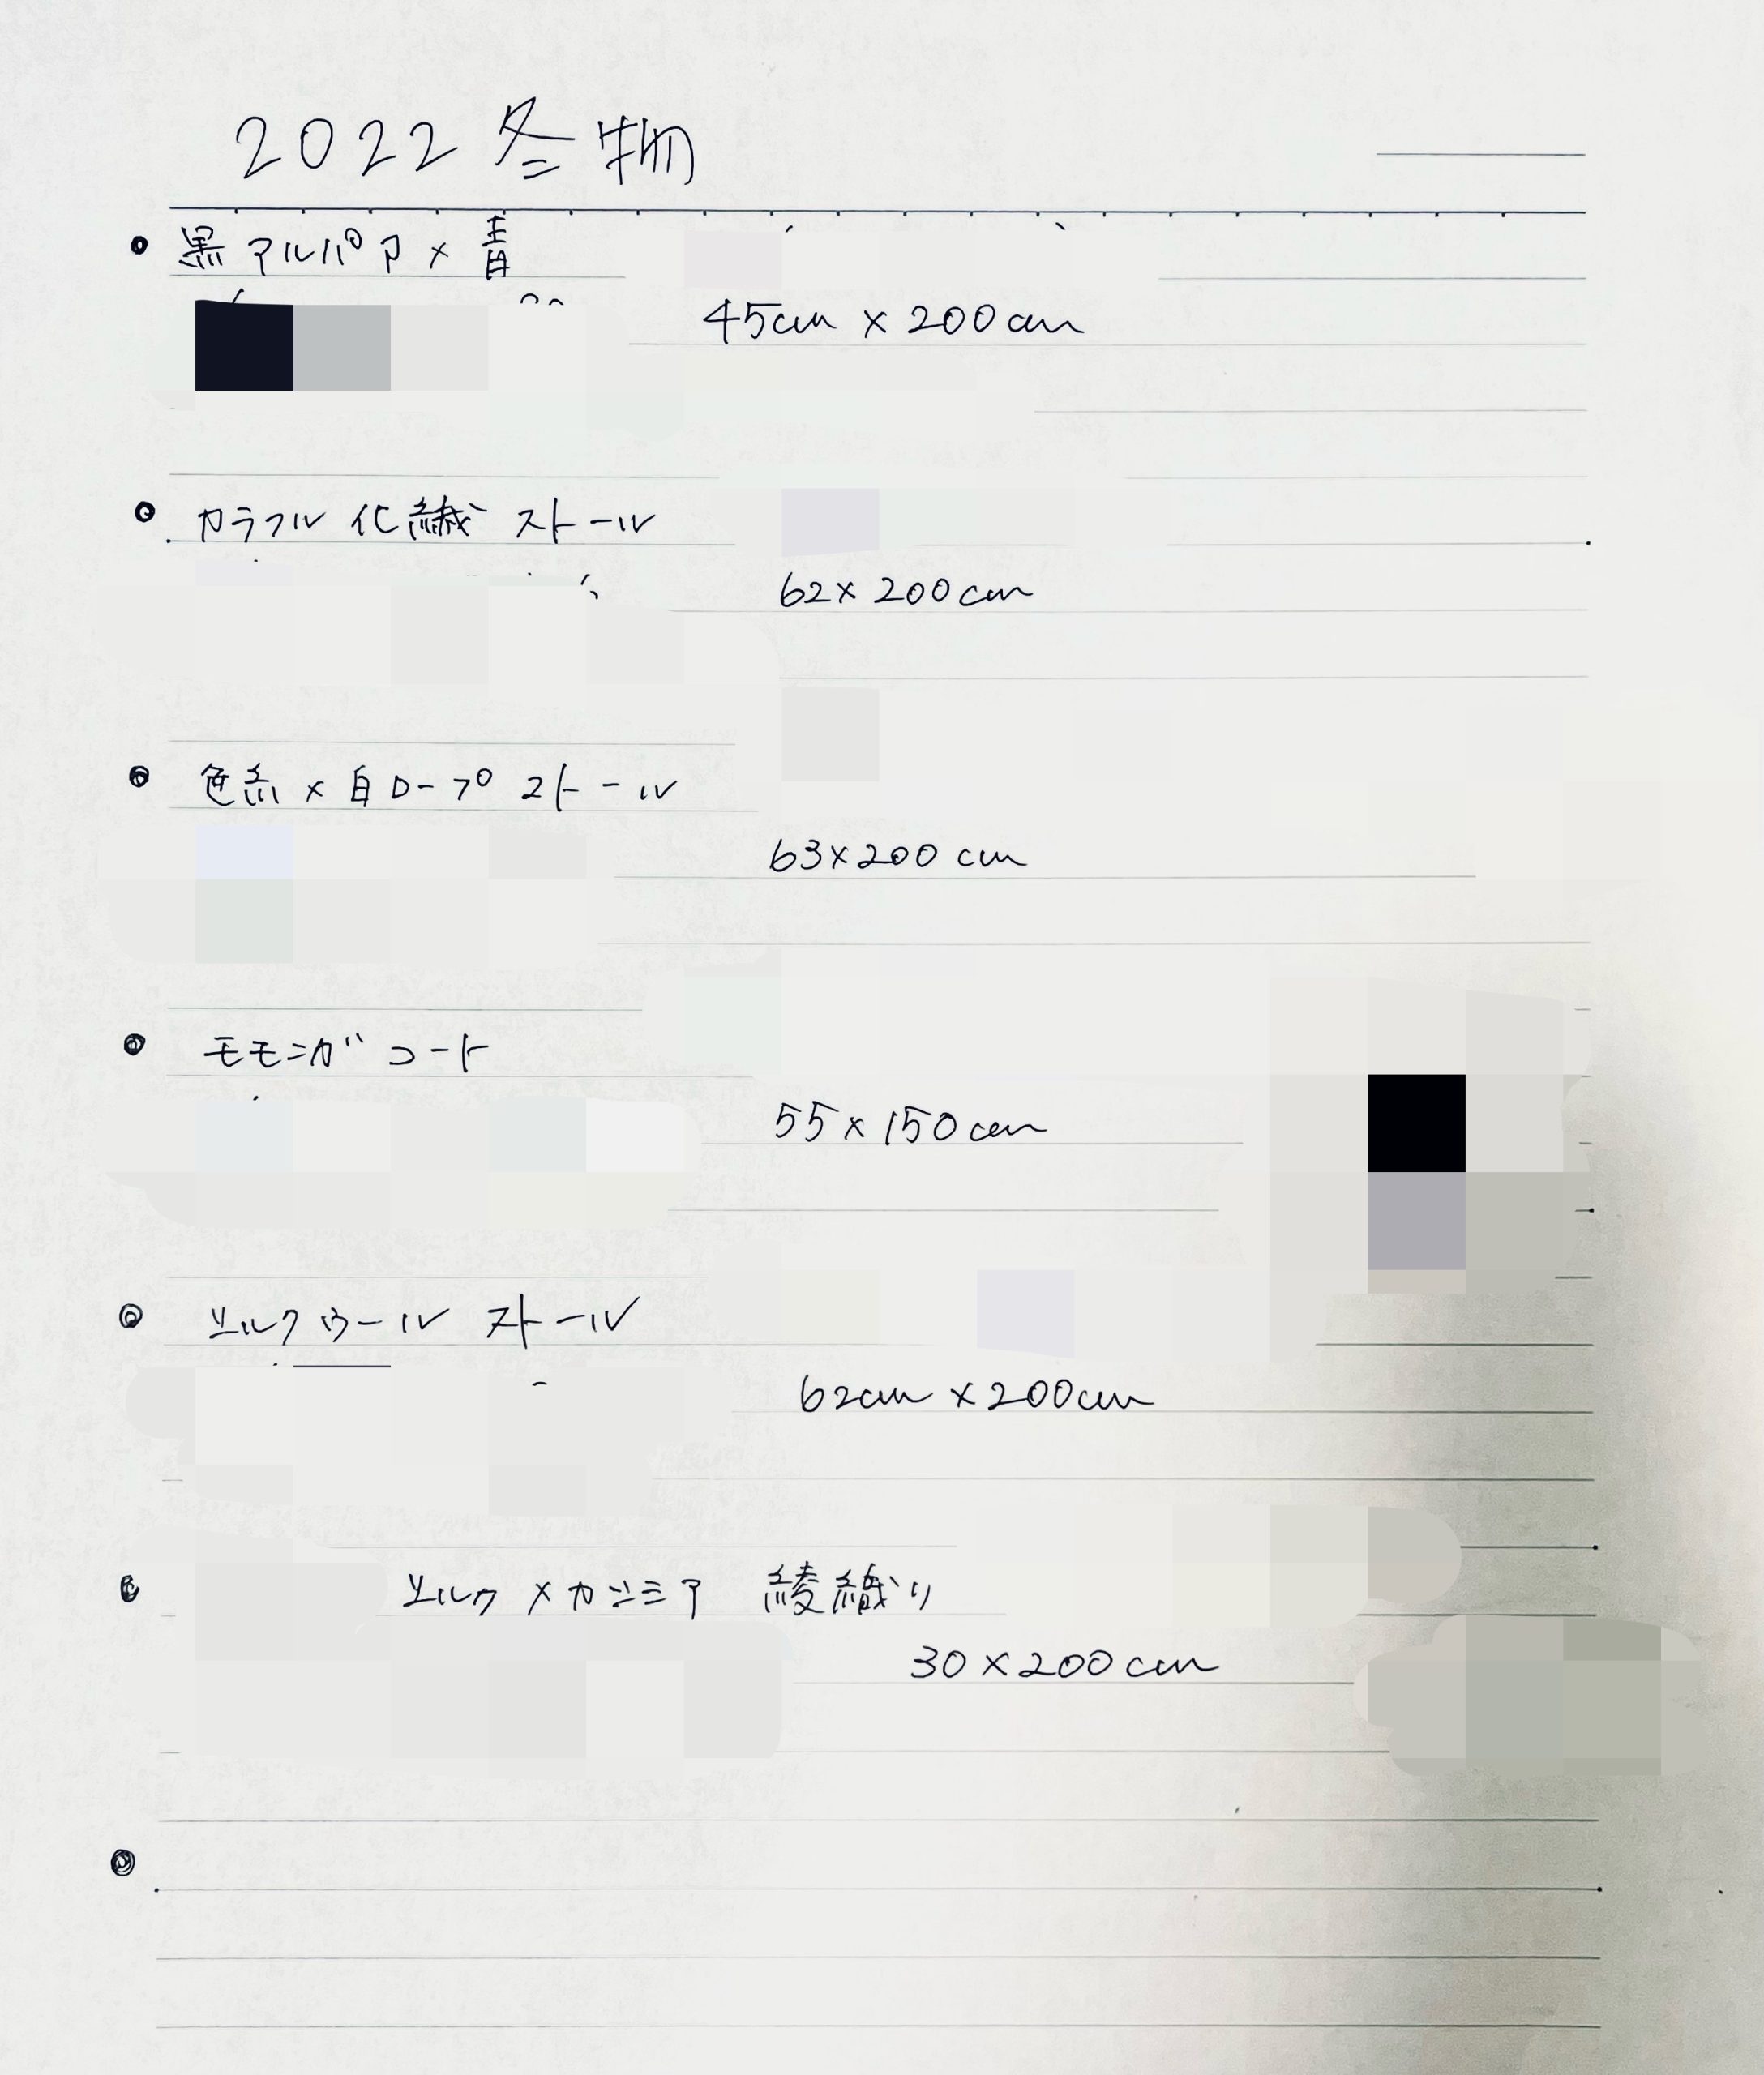 2022 冬物
黒 アルパカ × 青
45cm × 200cm
カラフル 化繊 ストール
62 × 200cm
色糸 × 白ループ ストール
63×200 cm
モモンガ コート
55 × 150cm
シルクウール ストール
62cm × 200cm
シルク × カシミア 綾織り
30 × 200cm